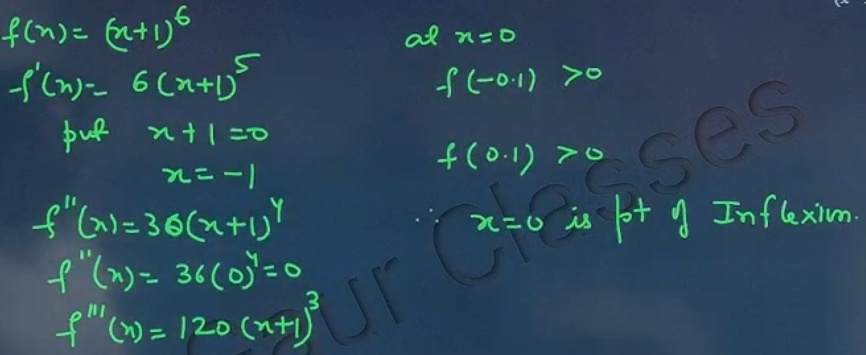 f(x) = (x+1)^6
f'(x) = 6(x+1)^5
put x+1=0
x=-1
f''(x)=36(x+1)^4
f''(x)= 36(0)^4=0
f'''(x) = 120(x+1)^3
at x=0
f(-0.1) >0
f(0.1) >0
∴ x=0 is pt of Inflexion.
Gaur Classes